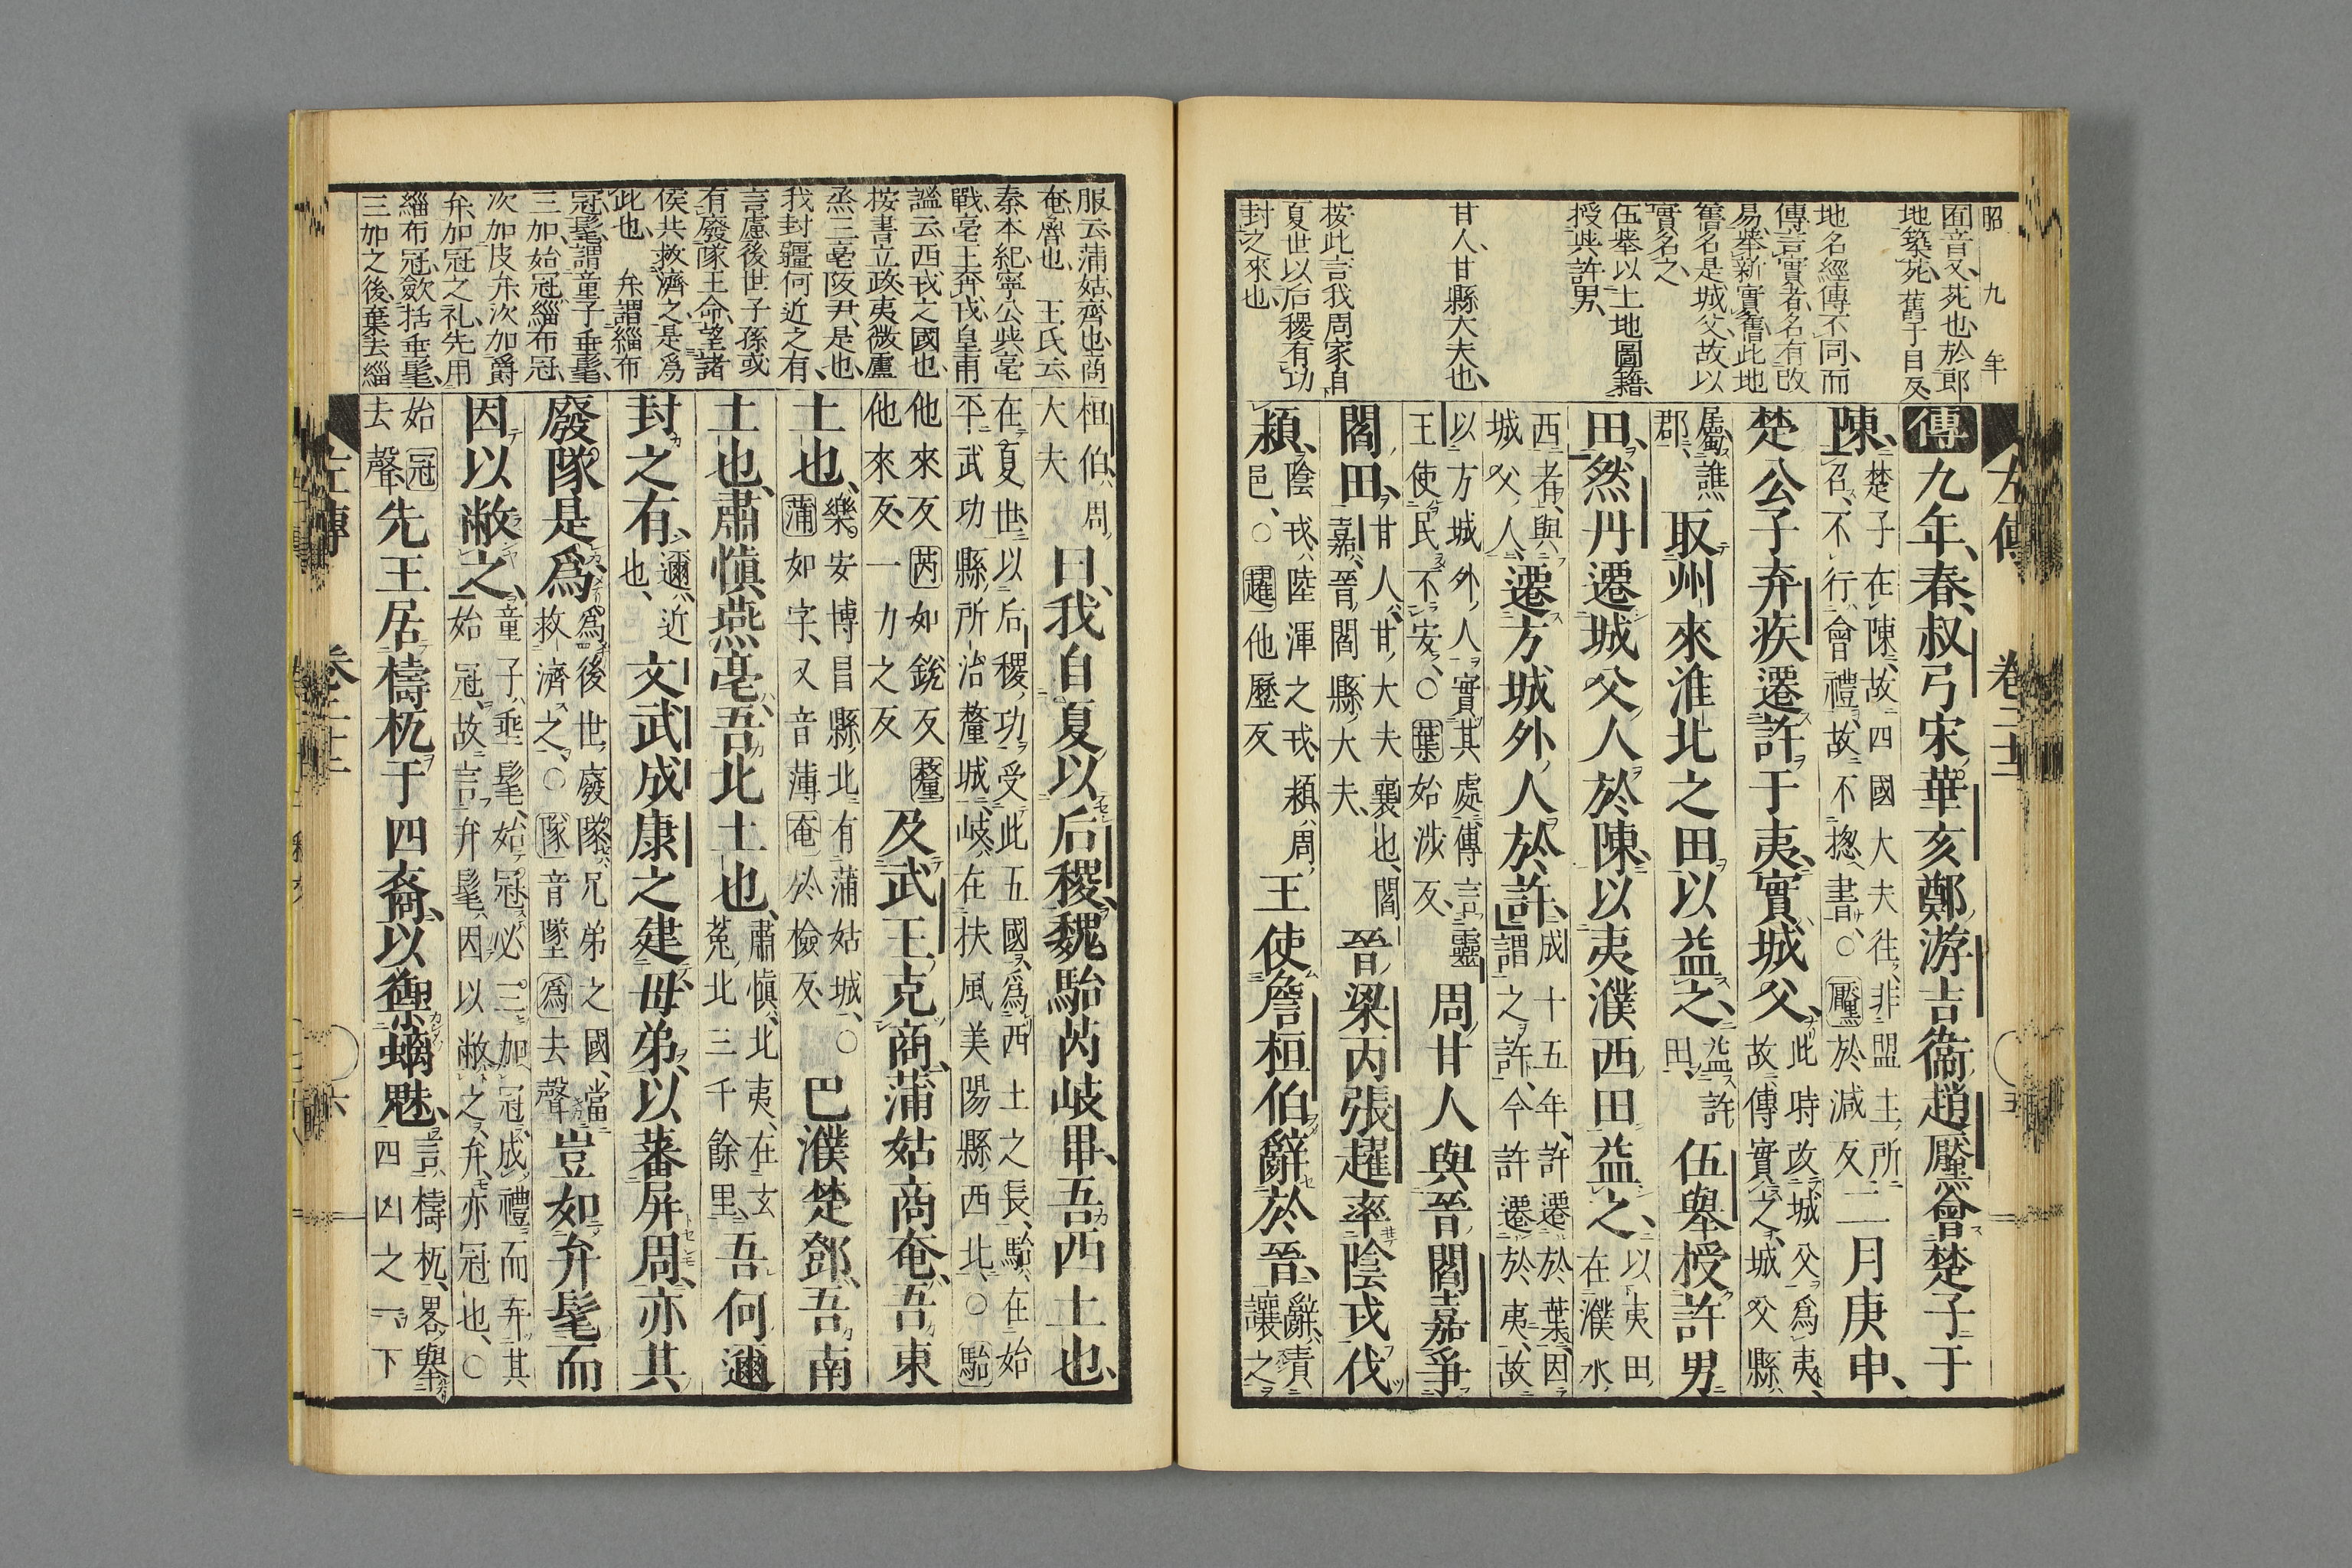 昭九年
囿音又苑也於郎
地築苑舊于目反
地名經傳不同而
傳言實者名有改
易舉新實舊此地
舊名是城父故以
實名之
伍舉以土地圖籍
授與許男
甘人甘縣大夫也
按此言我周家自
夏世以后稷有功
封之來也
傳九年春叔弓宋華亥鄭游吉衞趙黶會楚子于
陳楚子在陳故四國大夫往非盟主所
召不行會禮故不揔書○黶於減反二月庚申
楚公子弃疾遷許于夷實城父此時改城父爲夷
故傳實之城父縣
屬譙
郡取州來淮北之田以益之益許
田伍舉授許男
田然丹遷城父人於陳以夷濮西田益之以夷田
在濮水
西者與
城父人遷方城外人於許成十五年許遷於葉因
謂之許今許遷於夷故
以方城外人實其處傳言靈
王使民不安○葉始涉反周甘人與晉閻嘉爭
閻田甘人甘大夫襄也閻
嘉晉閻縣大夫晉梁丙張趯率陰戎伐
潁陰戎陸渾之戎潁周
邑○趯他歷反王使詹桓伯辭於晉辭責
讓之
左傳 卷二十二
服云蒲姑齊也商
奄魯也 王氏云
秦本紀寧公與亳
戰亳王奔戎皇甫
謐云西戎之國也
按書立政夷微盧
烝三亳阪尹是也
我封疆何近之有
言慮後世子孫或
有廢隊王命望諸
侯共救濟之是爲
此也 弁謂緇布
冠髦謂童子垂髦
三加始冠緇布冠
次加皮弁次加爵
弁加冠之礼先用
緇布冠歛括垂髦
三加之後棄去緇
桓伯周
大夫曰我自夏以后稷魏駘芮岐畢吾西土也
在夏世以后稷功受此五國爲西土之長駘在始
平武功縣所治釐城岐在扶風美陽縣西北○駘
他來反芮如銳反釐
他來反一力之反及武王克商蒲姑商奄吾東
土也樂安博昌縣北有蒲姑城○
蒲如字又音薄奄於檢反巴濮楚鄧吾南
土也肅愼燕亳吾北土也肅愼北夷在玄
菟北三千餘里吾何邇
封之有邇近
也文武成康之建母弟以蕃屏周亦其
廢隊是爲爲後世廢隊兄弟之國當
救濟之○隊音墜爲去聲豈如弁髦而
因以敝之童子垂髦始冠必三加冠成禮而弃其
始冠故言弁髦因以敝之弁亦冠也○
始冠
去聲先王居檮杌于四裔以禦螭魅言檮杌畧舉
四凶之一下
左傳 卷二十二